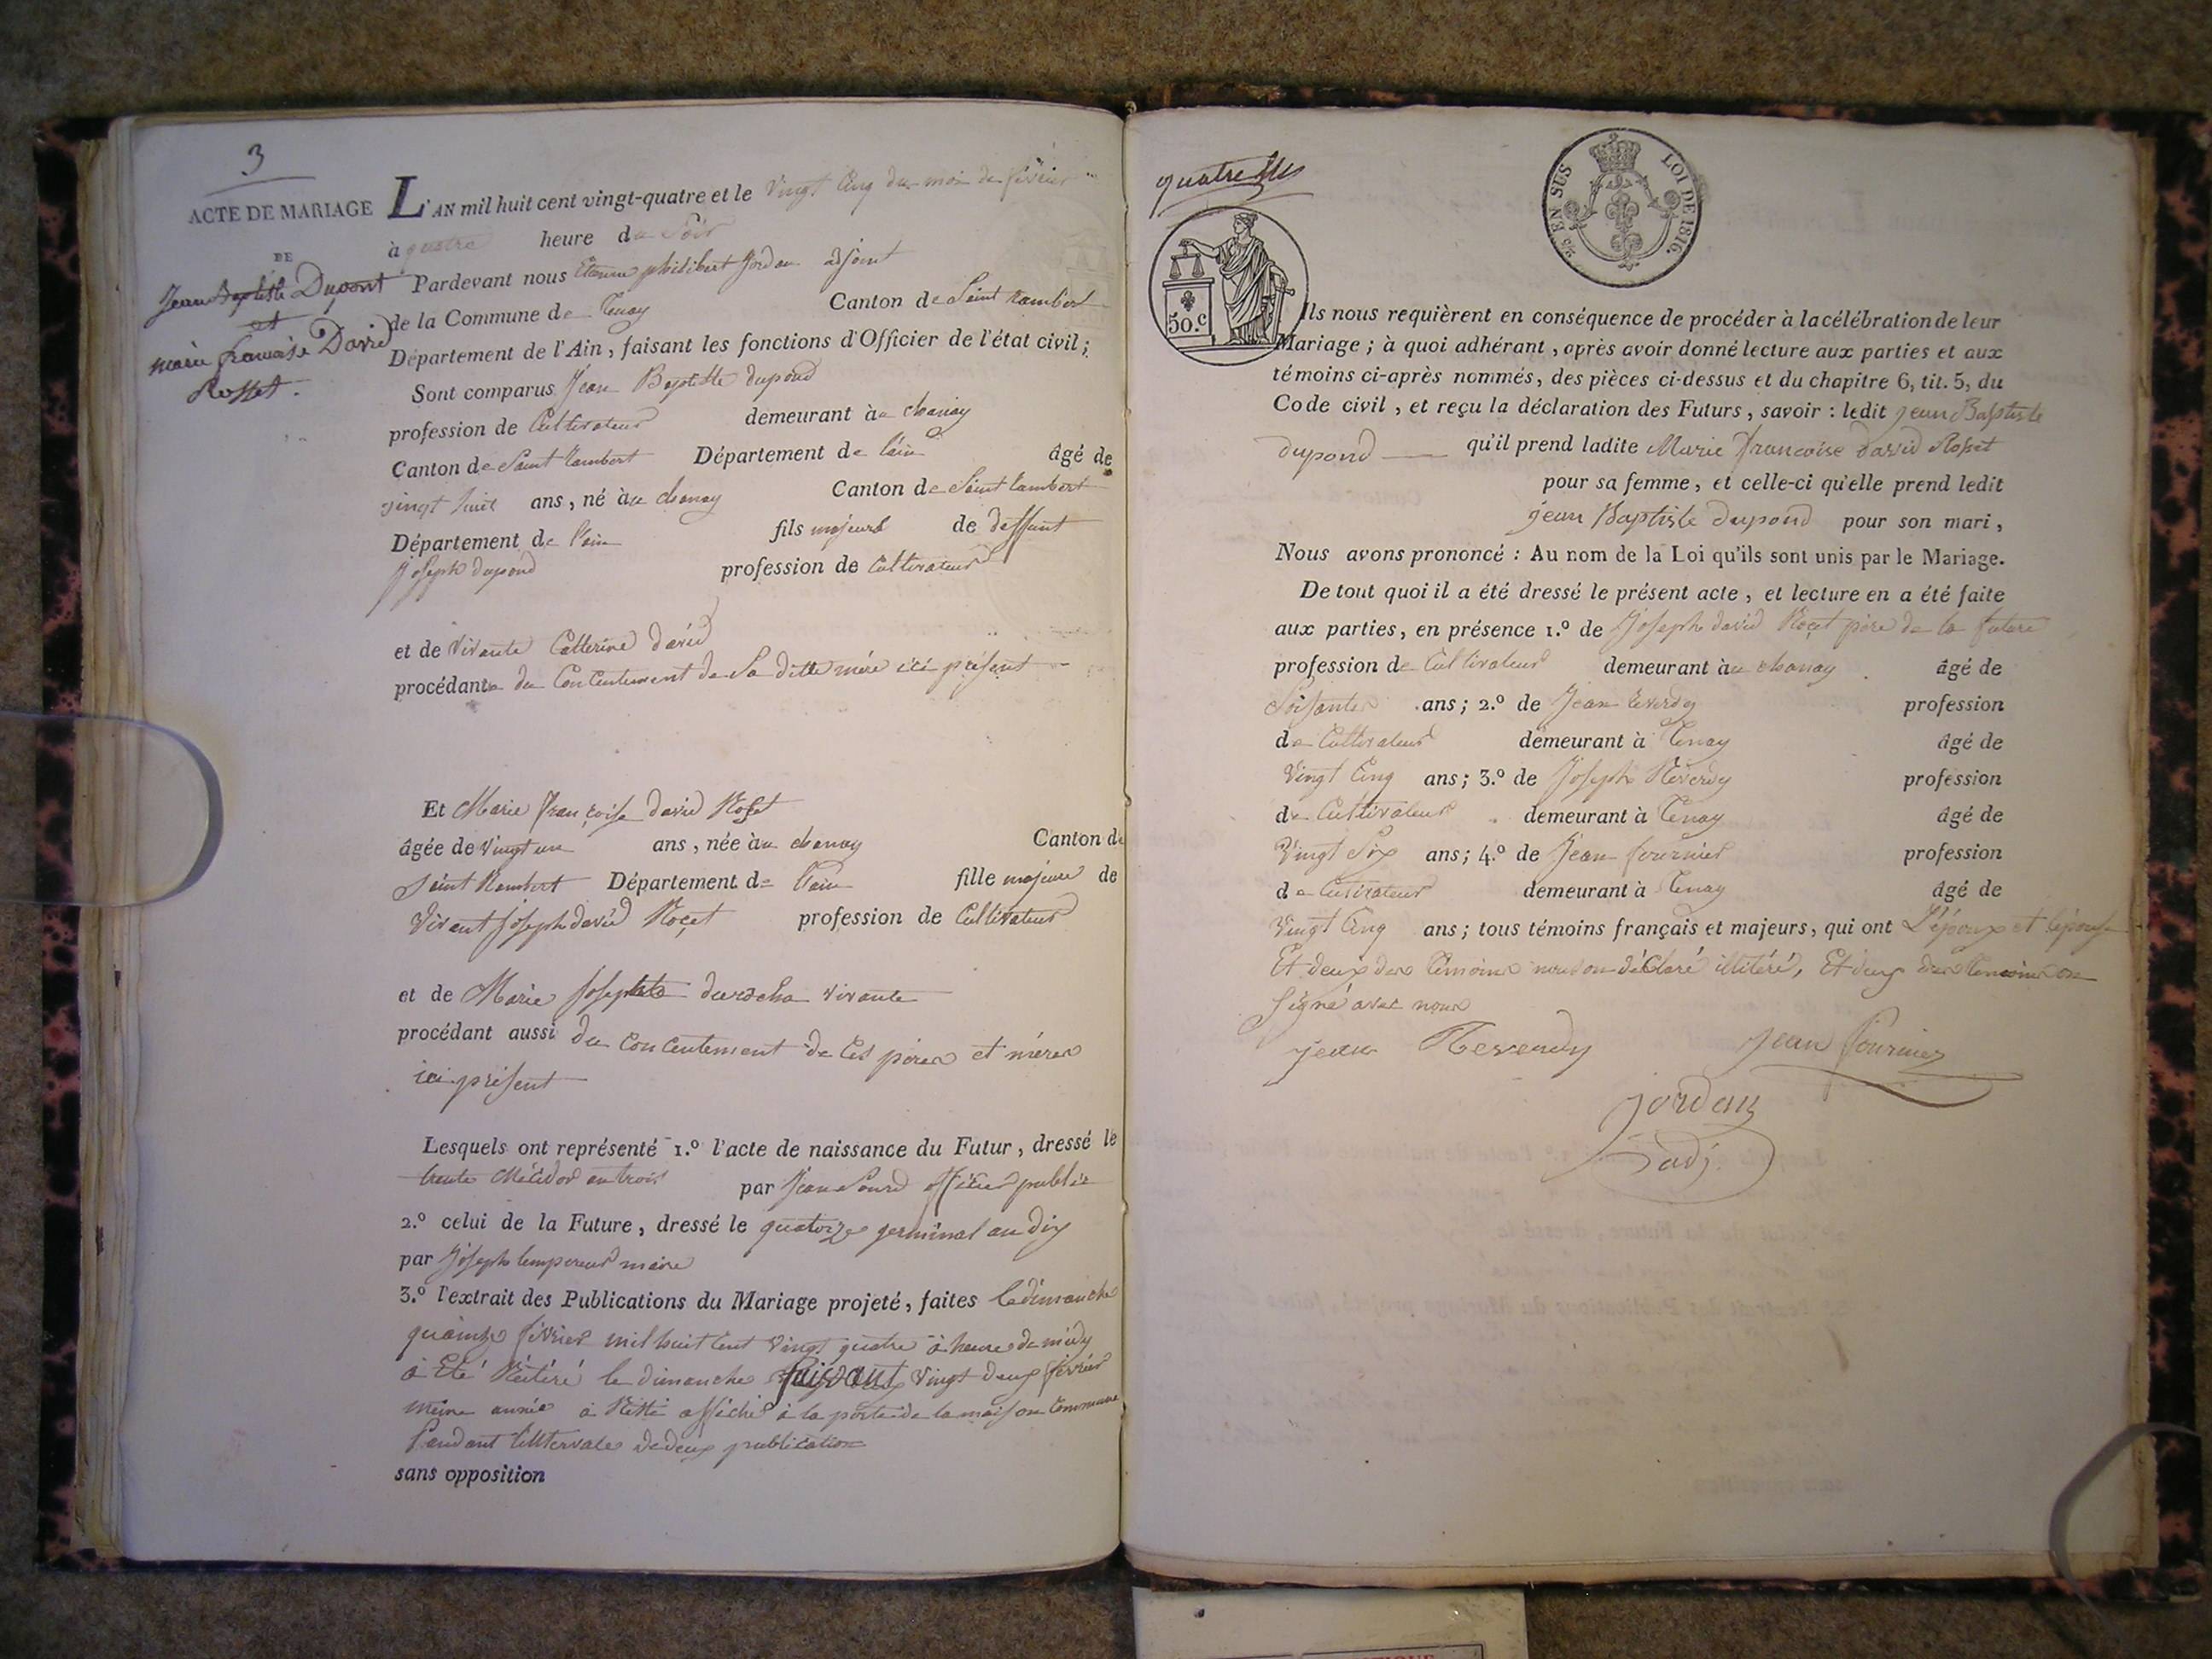 3
ACTE DE MARIAGE
DE
Jean Baptiste Dupont
et
marie francoise David
Rosset.
L'AN mil huit cent vingt-quatre et le vingt Cinq du mois de février
à quatre heure du Soir
Pardevant nous Etienne philibert Jordan adjoint
de la Commune de Tenay Canton de Saint Rambert
Département de l'Ain, faisant les fonctions d'Officier de l'état civil;
Sont comparus Jean Baptiste dupond
profession de Cultivateur demeurant àu chanay
Canton de Saint Rambert Département de l'ain âgé de
vingt huit ans, né àu chanay Canton de Saint Rambert
Département de l'ain fils majeurs de deffunt
Joseph dupond profession de Cultivateur
et de vivante Catterine david
procédant du Concentement de Sa ditte mère ici présent
Et Marie francoise david Roset
âgée de vingt un ans, née àu chanay Canton de
Saint Rambert Département de l'ain fille majeure de
vivant Joseph david Roçet profession de Cultivateur
et de Marie Josephte vivante
procédant aussi du Concentement de Ces pères et mères
ici présent
Lesquels ont représenté 1.º l'acte de naissance du Futur, dressé le
trente Mécidor an trois par Jean officier public
2.º celui de la Future, dressé le quatorze germinal an dix
par Joseph Lempereur maire
3.º l'extrait des Publications du Mariage projeté, faites le dimanche
quainze février mil huit Cent vingt quatre à heure de midy
à Eté Réitéré le dimanche suivant vingt deux février
meme année à Resté affiché à la porte de la maison Commune
Pendant l'intervale de deux publication
sans opposition
quatre
50.c
EN SUS
LOI DE 1816.
Ils nous requièrent en conséquence de procéder à la célébration de leur
Mariage; à quoi adhérant, après avoir donné lecture aux parties et aux
témoins ci-après nommés, des pièces ci-dessus et du chapitre 6, tit. 5, du
Code civil, et reçu la déclaration des Futurs, savoir: ledit jean Baptiste
dupond qu'il prend ladite Marie francoise david Rosset
pour sa femme, et celle-ci qu'elle prend ledit
jean Baptiste dupond pour son mari,
Nous avons prononcé: Au nom de la Loi qu'ils sont unis par le Mariage.
De tout quoi il a été dressé le présent acte, et lecture en a été faite
aux parties, en présence 1.º de Joseph david Roçet père de la future
profession de Cultivateur demeurant àu chanay âgé de
Soisante ans; 2.º de Jean Reverdy profession
de Cultivateur demeurant à Tenay âgé de
Vingt Cinq ans; 3.º de Joseph Reverdy profession
de Cultivateur demeurant à Tenay âgé de
Vingt Six ans; 4.º de Jean fournier profession
de Cultivateur demeurant à Tenay âgé de
Vingt Cinq ans; tous témoins français et majeurs, qui ont L'époux et l'épouse
Et deux des témoins nous on déclaré illitéré, Et deux des temoins on
Signé avec nous
jean Reverdy
jean fournier
jordan
adj.